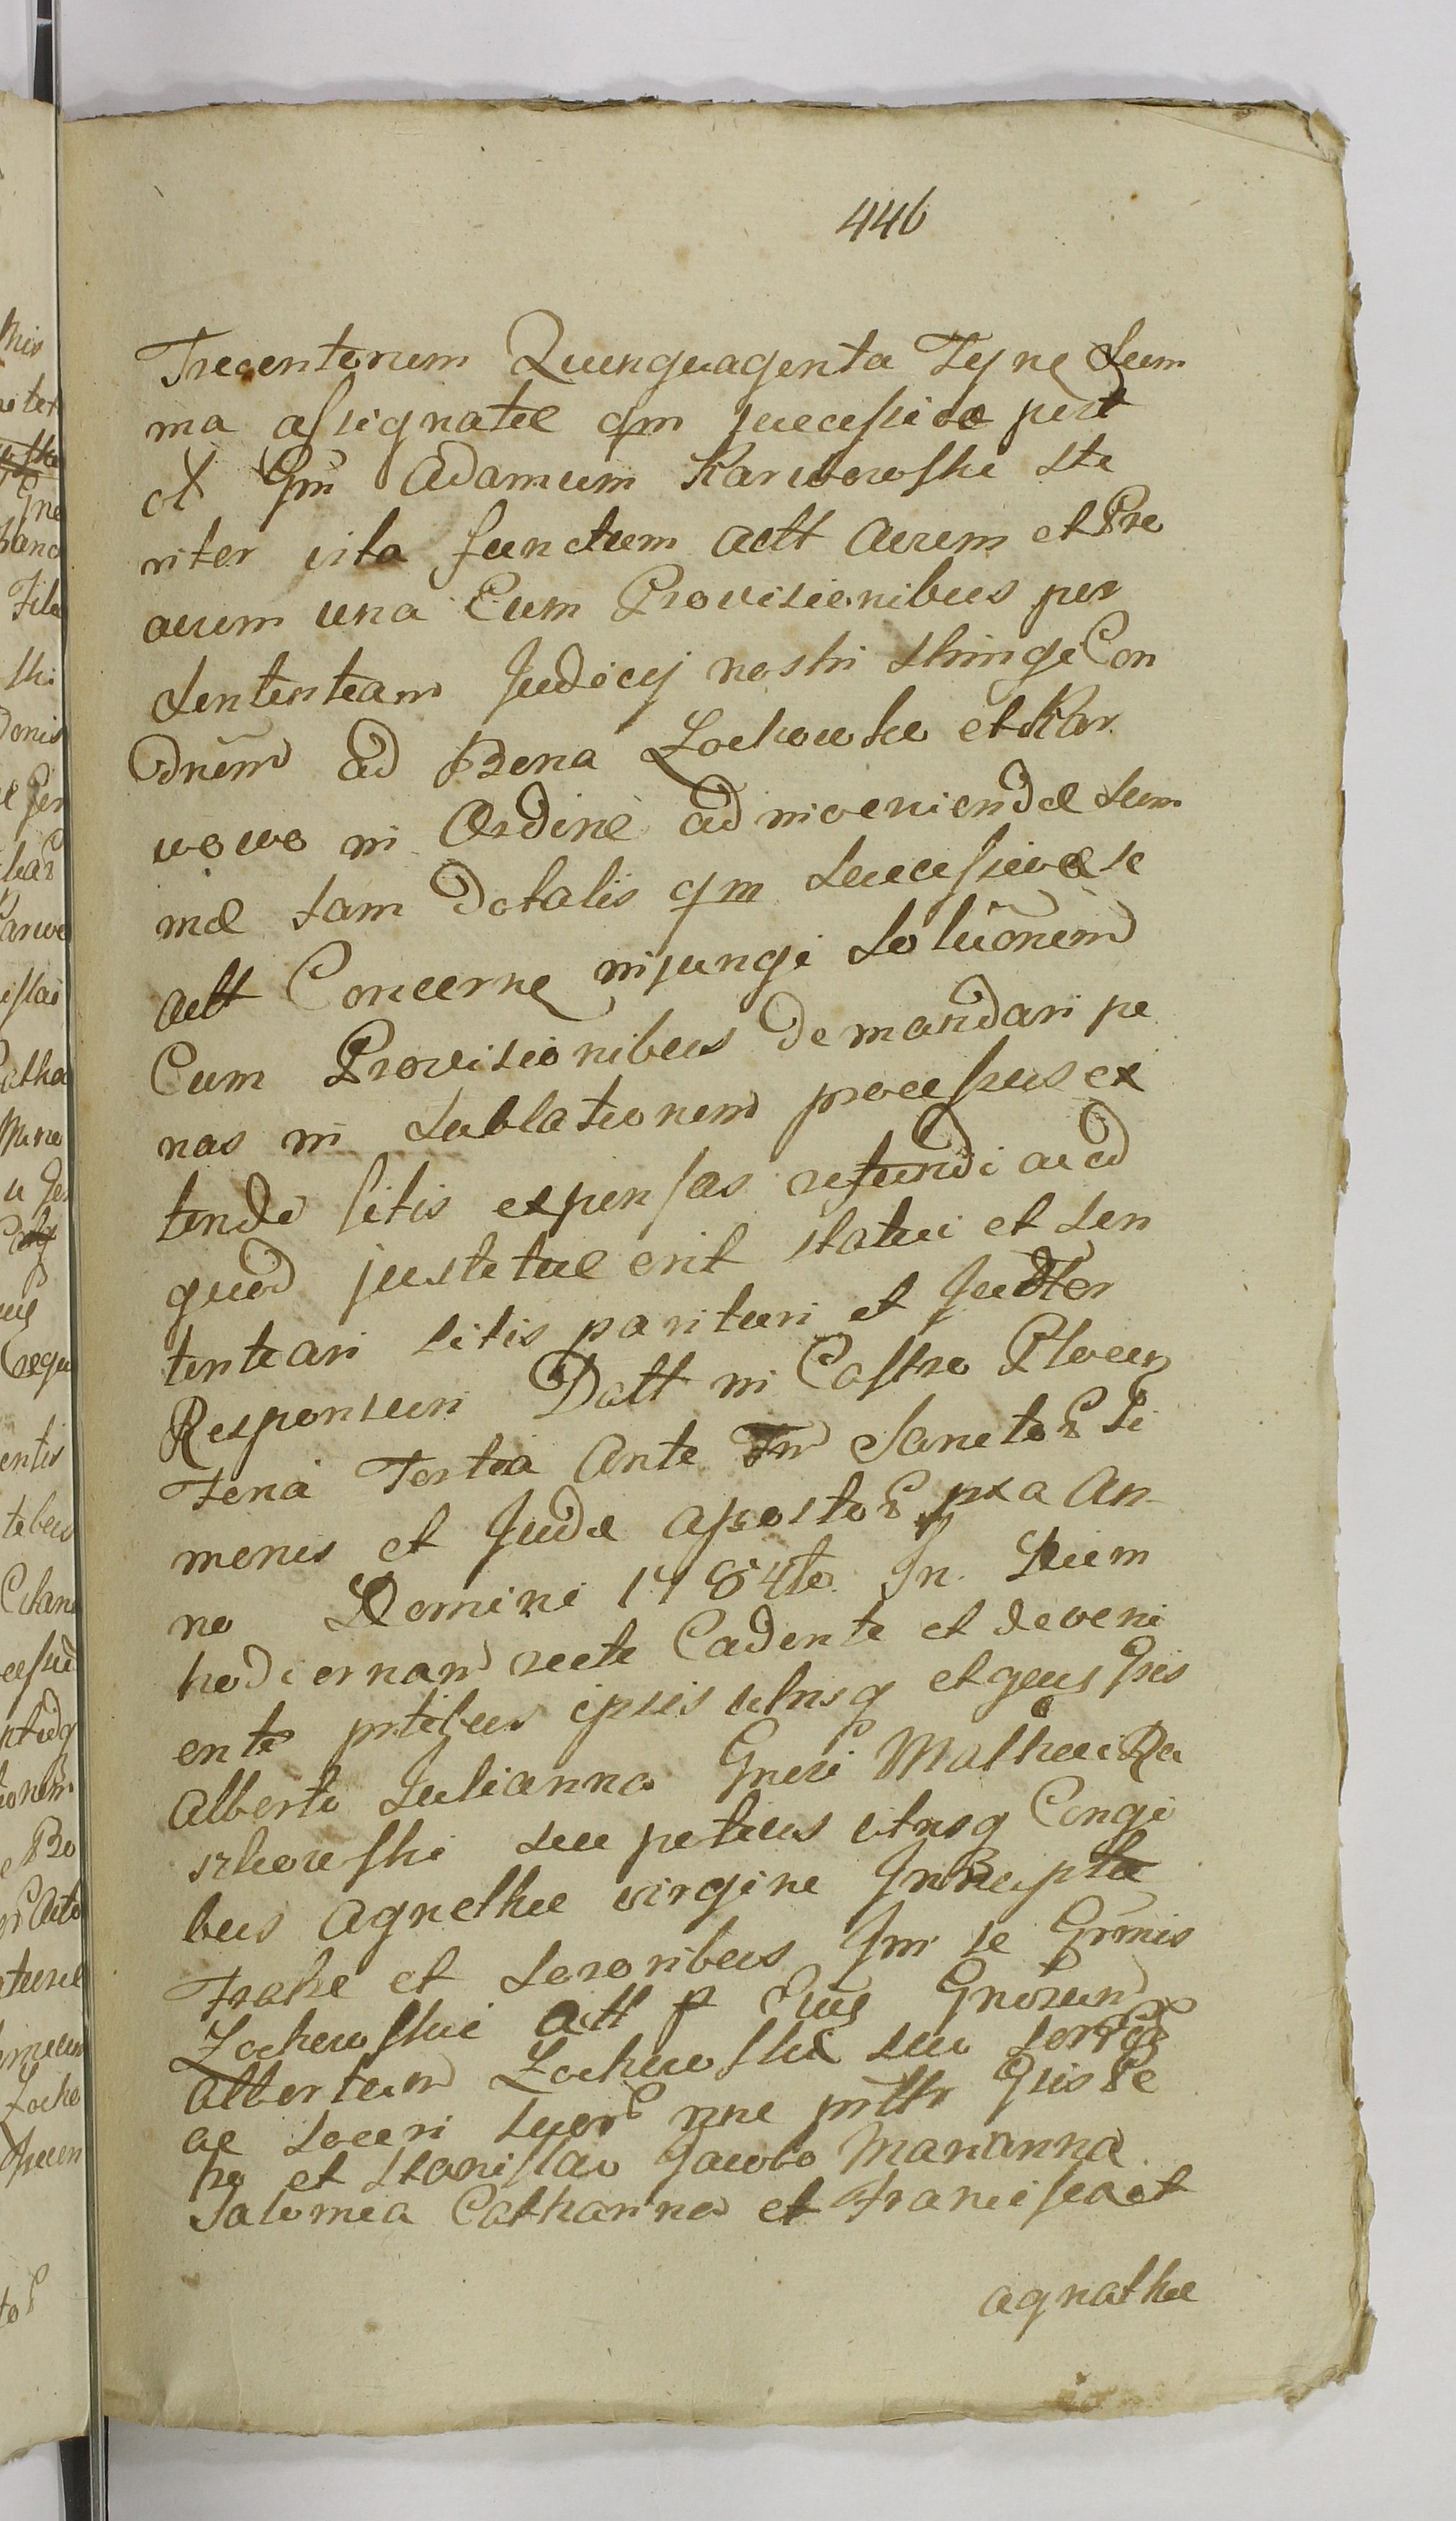 446
Trecentorum Quinquaginta Tyne Sum
ma assignatæ qm successive post
et Gm Adamum Karwowski ste
riter vita functum actt avum et Pro
avum una Cum Provisionibus per
Sententiam Judicij nostri Con
dnem ad Bona Zochowko et Kar
wowo in Ordine ad inveniendæ Sum
mæ tam dotalis qm Successivæ se
actt Concerne injungi Solutionem
Cum Provisionibus demandari pæ
nas in Sublationem processus ex
tendi litis expensas refundi ac id
quod justitiæ erit statui et Sen
tentiari litis parituri et Judtter
Responsuri Datt in Castro Plocen
Feria Tertia Ante Fm Sanctor Si
monis et Judæ Apostor pxa An
no Domini 1784to In Diem
hodiernam recte Cadente et deveni
ente prtibus ipsis utrisq et quus Gnis
Alberto Julianna Gnesi Matheus Ra
szkowski seu potius utrisq Congi
bus Agnethæ virgine Innuptæ
Fratre et Sororibus Inr se Grmis
Zochowskie att p Gnosum
Albertum Zochowski suo
ac Soceri Suor nne prttr Gnis Pe
tro et Stanislao Jacobo Marianna
Salomea Catharina et Francisca et
agnathæ